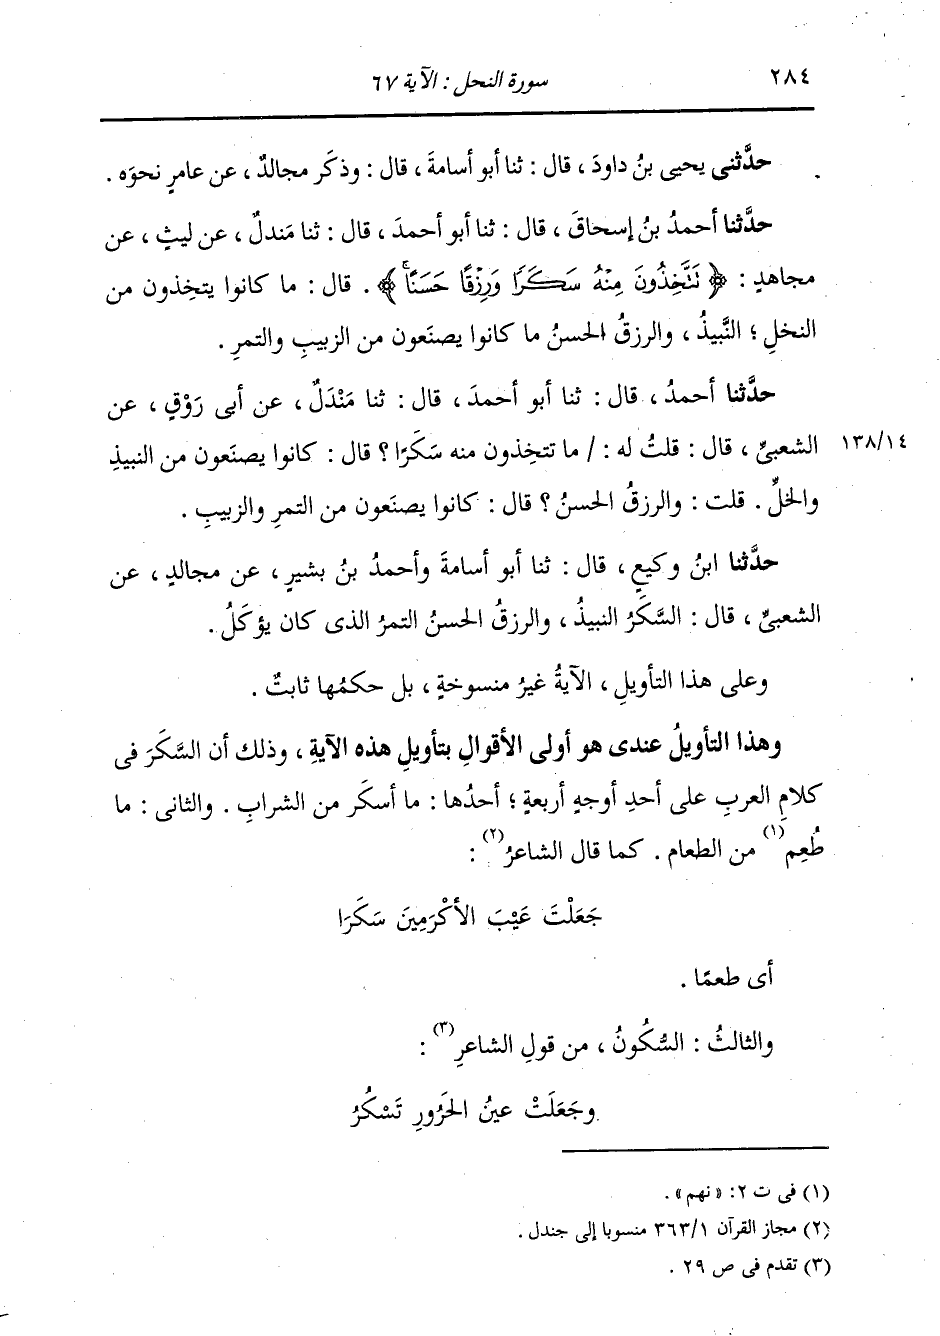 ٢٨٤
سورة النحل : الآية ٦٧
حدَّثنى يحيى بنُ داودَ ، قال : ثنا أبو أسامةَ ، قال : وذكَر مجالدٌ ، عن عامرٍ نحوَه .
حدَّثنا أحمدُ بنُ إسحاقَ ، قال : ثنا أبو أحمدَ ، قال : ثنا مَندلٌ ، عن ليثٍ ، عن
مجاهدٍ : ﴿ نَتَّخِذُونَ مِنْهُ سَكَرًا وَرِزْقًا حَسَنًا ﴾ . قال : ما كانوا يتخِذون من
النخلِ ؛ النَّبيذُ ، والرزقُ الحسنُ ما كانوا يصنَعون من الزبيبِ والتمرِ .
حدَّثنا أحمدُ ، قال : ثنا أبو أحمدَ ، قال : ثنا مَنْدَلٌ ، عن أبى رَوْقٍ ، عن
الشعبىِّ ، قال : قلتُ له : / ما تتخِذون منه سَكَرًا ؟ قال : كانوا يصنَعون من النبيذِ ١٣٨/١٤
والخلِّ . قلت : والرزقُ الحسنُ ؟ قال : كانوا يصنَعون من التمرِ والزبيبِ .
حدَّثنا ابنُ وكيعٍ ، قال : ثنا أبو أسامةَ وأحمدُ بنُ بشيرٍ ، عن مجالدٍ ، عن
الشعبىِّ ، قال : السَّكَرُ النبيذُ ، والرزقُ الحسنُ التمرُ الذى كان يؤكَلُ .
وعلى هذا التأويلِ ، الآيةُ غيرُ منسوخةٍ ، بل حكمُها ثابتٌ .
وهذا التأويلُ عندى هو أولى الأقوالِ بتأويلِ هذه الآيةِ ، وذلك أن السَّكَرَ فى
كلامِ العربِ على أحدِ أوجهٍ أربعةٍ ؛ أحدُها : ما أسكَر من الشرابِ . والثانى : ما
طُعِم(١) من الطعام . كما قال الشاعرُ(٢) :
جَعَلْتَ عَيْبَ الأكْرَمِينَ سَكَرَا
أى طعمًا .
والثالثُ : السُّكُونُ ، من قولِ الشاعرِ(٣) :
وجَعَلَتْ عينُ الحَرُورِ تَسْكُرُ
(١) فى ت ٢: « نهم» .
(٢) مجاز القرآن ٣٦٣/١ منسوبا إلى جندل .
(٣) تقدم فى ص ٢٩ .